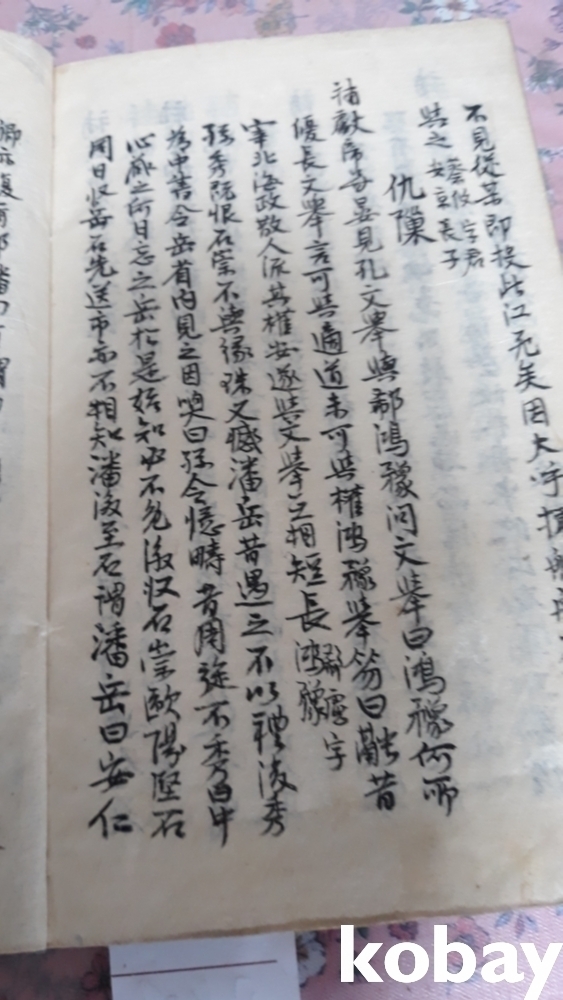 不見從某即投此江死矣因大呼
與之 蔡攸字君
安京長子
仇隟
補獻帝嘗晏見孔文舉與郗鴻豫問文舉曰鴻豫何所
優長文舉言可與適道未可與權鴻豫舉笏曰融昔
宰北海政散人流其權安遂與文舉互相短長 郗慮字
鴻豫
孫秀既恨石崇不與綠珠又憾潘岳昔遇之不以禮後秀
為中書令岳省內見之因喚曰孫令憶疇昔周旋不秀曰中
心藏之何日忘之岳於是始知必不免後收石崇歐陽堅石
同日收岳石先送市亦不相知潘後至石謂潘岳曰安仁
卿亦復
kobay